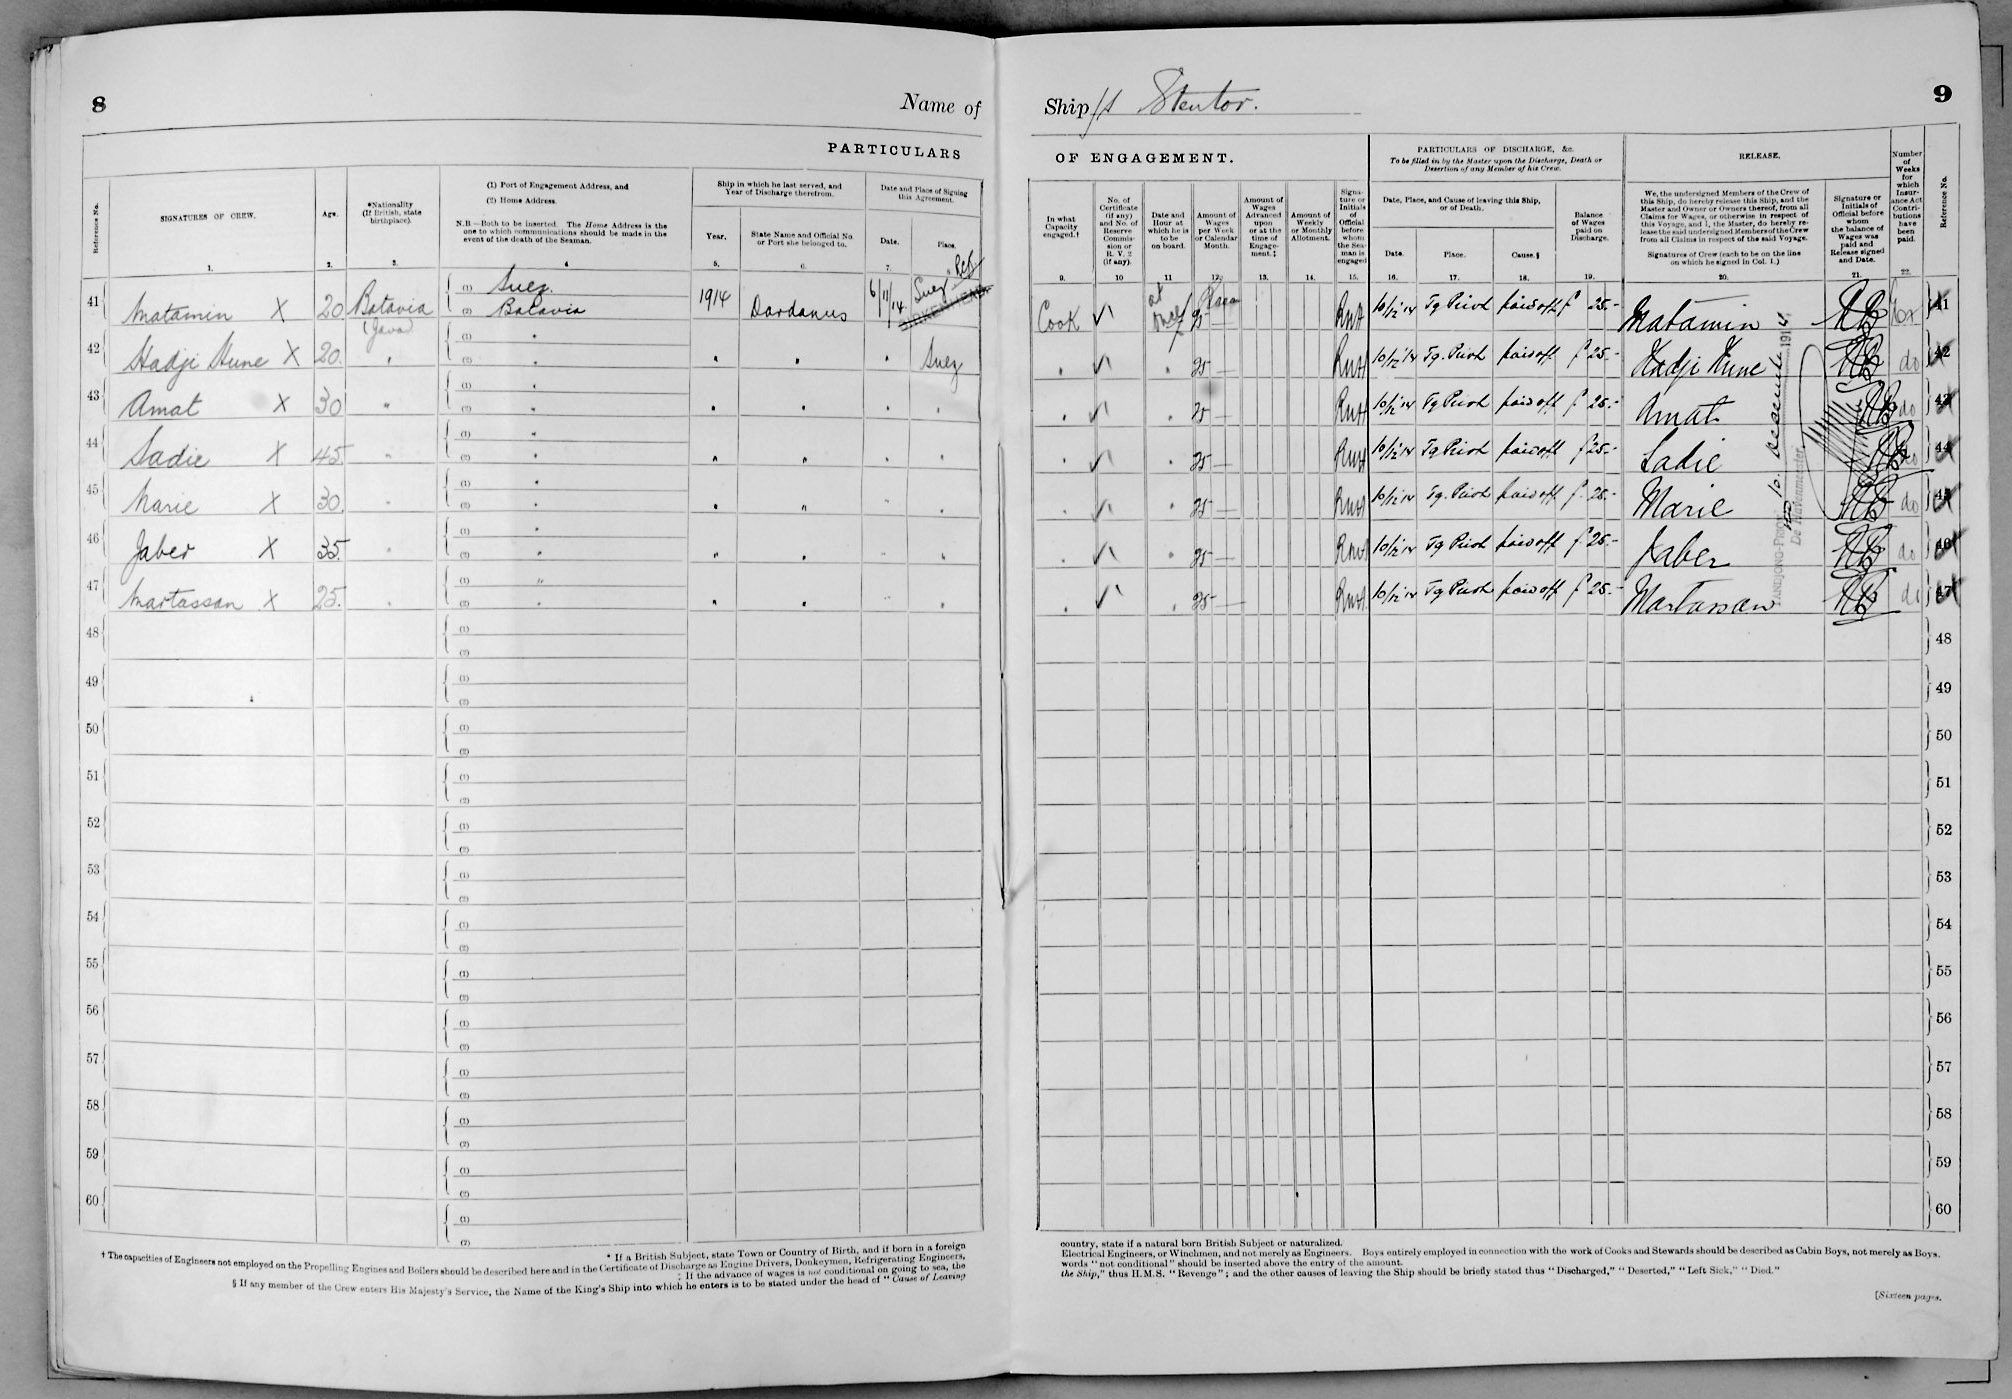 8
Name of
PARTICULARS
Reference No.
SIGNATURES OF CREW.
Age.
*Nationality
(If British, state
birthplace).
(1) Port of Engagement Address, and
(2) Home Address.
N.B—Both to be inserted. The Home Address is the
one to which communications should be made in the
event of the death of the Seaman.
Ship in which he last served, and
Year of Discharge therefrom.
Year.
State Name and Official No.
or Port she belonged to.
Date and Place of Signing
this Agreement.
Date.
Place.
1. 2. 3. 4 5. 6. 7.
41 Matamin X 20 Batavia (Java) (1) Suez. (2) Batavia 1914 Dardanus 6/11/14 Suez
42 Hadji Hune X 20. " (1) " (2) " " " " Suez
43 Amat X 30 " (1) " (2) " " " " "
44 Sadie X 45. " (1) " (2) " " " " "
45 Marie X 30. " (1) " (2) " " " " "
46 Jaber X 35. " (1) " (2) " " " " "
47 Martassan X 25. " (1) " (2) " " " " "
48 (1) (2)
49 (1) (2)
50 (1) (2)
51 (1) (2)
52 (1) (2)
53 (1) (2)
54 (1) (2)
55 (1) (2)
56 (1) (2)
57 (1) (2)
58 (1) (2)
59 (1) (2)
60 (1) (2)
* If a British Subject, state Town or Country of Birth, and if born in a foreign
† The capacities of Engineers not employed on the Propelling Engines and Boilers should be described here and in the Certificate of Discharge as Engine Drivers, Donkeymen, Refrigerating Engineers,
‡ If the advance of wages is not conditional on going to sea, the
§ If any member of the Crew enters His Majesty's Service, the Name of the King's Ship into which he enters is to be stated under the head of "Cause of Leaving
Ship s/s Stentor.
9
OF ENGAGEMENT.
PARTICULARS OF DISCHARGE, &c.
To be filled in by the Master upon the Discharge, Death or
Desertion of any Member of his Crew.
RELEASE.
In what
Capacity
engaged.†
No. of
Certificate
(if any)
and No. of
Reserve
Commis-
sion or
R. V. 2
(if any).
Date and
Hour at
which he is
to be
on board.
Amount of
Wages
per Week
or Calendar
Month.
Amount of
Wages
Advanced
upon
or at the
time of
Engage-
ment.‡
Amount of
Weekly
or Monthly
Allotment.
Signa-
ture or
Initials
of
Official
before
whom
the Sea-
man is
engaged
Date, Place, and Cause of leaving this Ship,
or of Death.
Date.
Place.
Cause.§
Balance
of Wages
paid on
Discharge.
We, the undersigned Members of the Crew of
this Ship, do hereby release this Ship, and the
Master and Owner or Owners thereof, from all
Claims for Wages, or otherwise in respect of
this Voyage, and I, the Master, do hereby re-
lease the said undersigned Members of the Crew
from all Claims in respect of the said Voyage.
Signatures of Crew (each to be on the line
on which he signed in Col. 1.)
Signature or
Initials of
Official before
whom
the balance of
Wages was
paid and
Release signed
and Date.
Number
of
Weeks
for
which
Insur-
ance Act
Contri-
butions
have
been
paid.
Reference No.
9. 10 11 12. 13. 14. 15. 16. 17. 18. 19. 20. 21. 22.
Cook at once 25 — 10/12 14 Tg Priok paid off f 25.- Matamin 41
" " 25 — 10/12 14 Tg. Priok paid off f 25.- Hadji Hune do 42
" " 25 — 10/12 14 Tg Priok paid off f 25.- Amat do 43
" " 25 — 10/12 14 Tg Priok paid off f 25.- Sadie do 44
" " 25 — 10/12 14 Tg. Priok paid off f 25.- Marie do 45
" " 25 — 10/12 14 Tg Priok paid off f 25.- Jaber do 46
" " 25 — 10/12 14 Tg Priok paid off f 25.- Martassan do 47
TANDJONG-PRIOK 10 December 1914
De Havenmeester
48
49
50
51
52
53
54
55
56
57
58
59
60
country, state if a natural born British Subject or naturalized.
Electrical Engineers, or Winchmen, and not merely as Engineers. Boys entirely employed in connection with the work of Cooks and Stewards should be described as Cabin Boys, not merely as Boys.
words "not conditional" should be inserted above the entry of the amount.
the Ship," thus H.M.S. "Revenge"; and the other causes of leaving the Ship should be briefly stated thus "Discharged," "Deserted," "Left Sick," "Died."
[Sixteen pages.